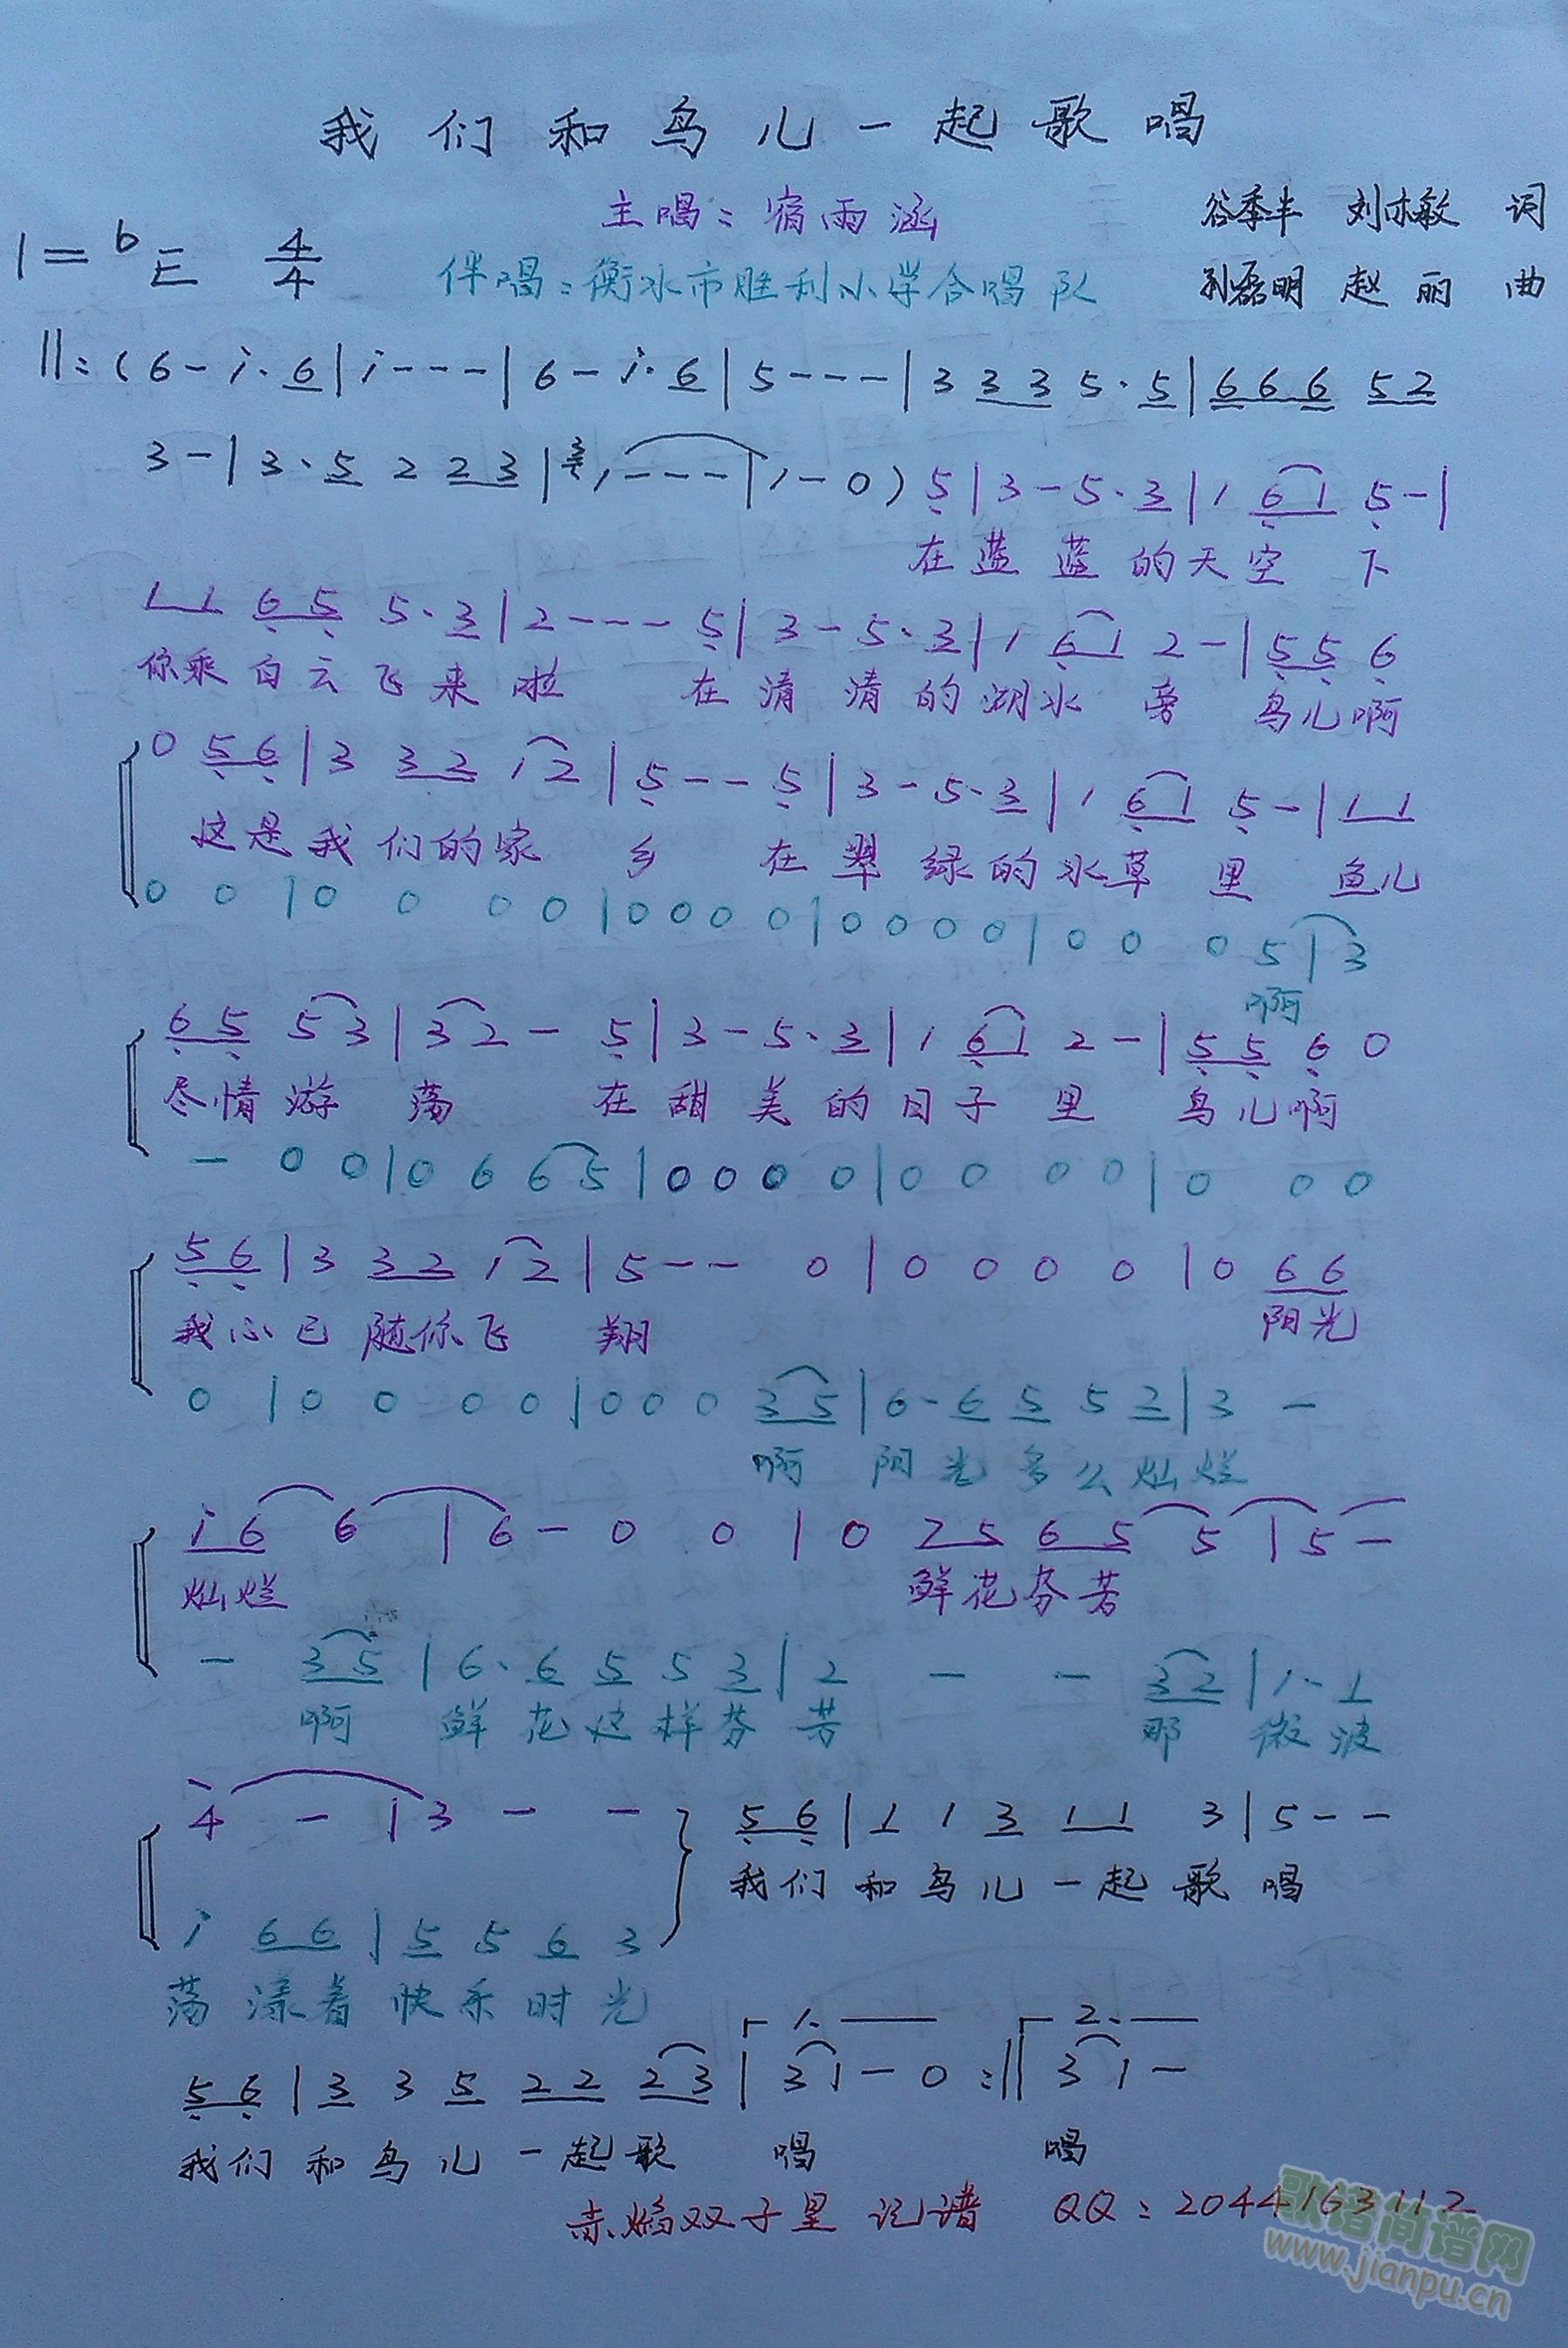 我们和鸟儿一起歌唱
主唱：宿雨涵 谷季丰 刘亦敏 词
1=bE 4/4 伴唱：衡水市胜利小学合唱队 孙磊明 赵丽 曲
||:(6-i·6|i---|6-i·6|5---|3 3 3 5·5|6 6 6 5 2
3-|3·5 2 2 3|1---|1-0) 5|3-5·3|1 6 1 5-|
在蓝蓝的天空 下
1 1 6 5 5·3|2---5|3-5·3|1 6 1 2-|5 5 6
你乘白云飞来啦 在清清的湖水 旁 鸟儿啊
0 5 6|3 3 2 1 2|5--5|3-5·3|1 6 1 5-|1 1
这是我们的家 乡 在翠绿的水草 里 鱼儿
0 0|0 0 0 0|0 0 0 0|0 0 0 0|0 0 0 5|3
啊
6 5 5 3|3 2 - 5|3-5·3|1 6 1 2-|5 5 6 0
尽情游 荡 在甜美的日子 里 鸟儿啊
- 0 0|0 6 6 5|0 0 0 0|0 0 0 0|0 0 0
5 6|3 3 2 1 2|5-- 0|0 0 0 0|0 6 6
我心已随你飞 翔 阳光
0|0 0 0 0|0 0 0 3 5|6·6 5 5 2|3 -
啊 阳光多么灿烂
i 6 6|6-0 0|0 2 5 6 5 5|5-
灿烂 鲜花芬芳
- 3 5|6·6 5 5 3|2 - - 3 2|1·1
啊 鲜花这样芬芳 那 微波
4 - |3 - - } 5 6|1 1 3 1 1 3|5--
我们和鸟儿一起歌唱
i 6 6|5 5 6 3
荡漾着快乐时光
1. 2.
5 6|3 3 5 2 2 2 3|3 1-0:||3 1-
我们和鸟儿一起歌 唱 唱
赤焰双子星 记谱 QQ：2044163112
歌谱简谱网
www.jianpu.cn